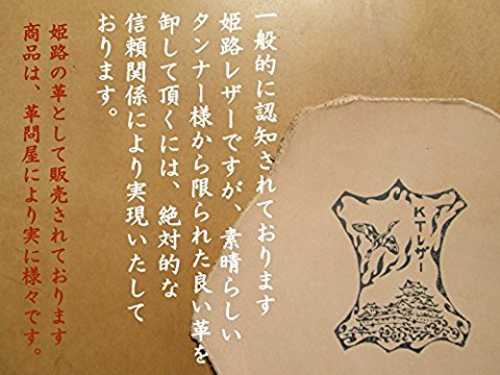 一般的に認知されております
姫路レザーですが、素晴らしい
タンナー様から限られた良い革を
卸して頂くには、絶対的な
信頼関係により実現いたして
おります。
姫路の革として販売されております
商品は、革問屋により実に様々です。
KTレザー